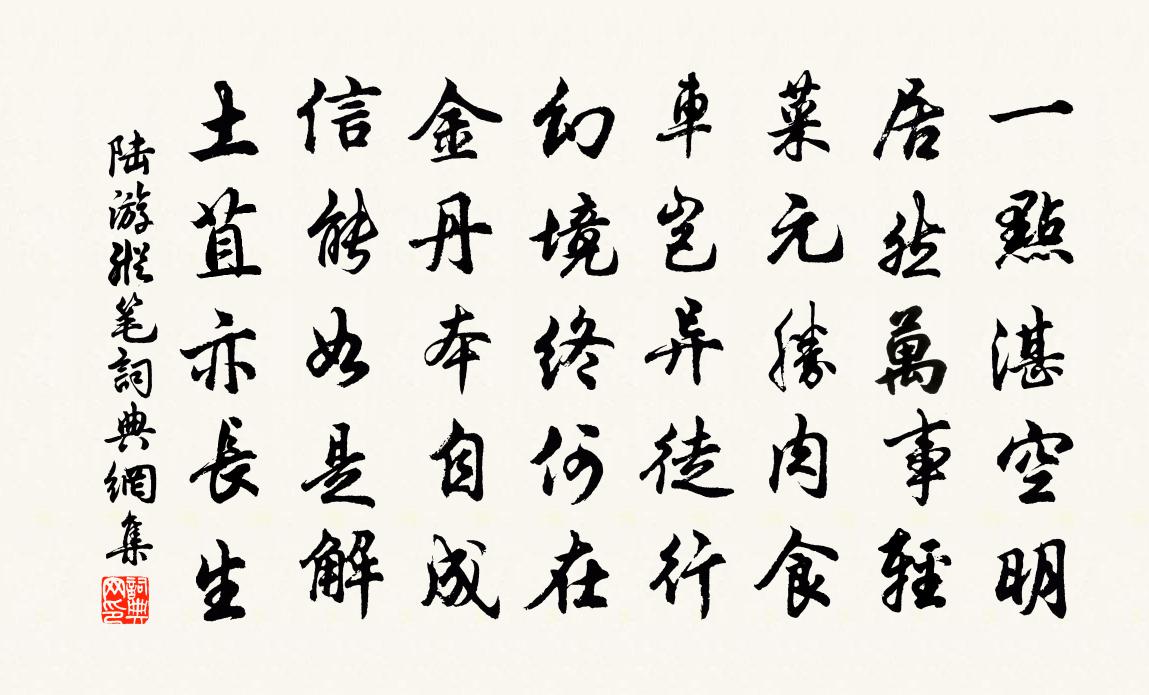 一點湛空明
居然萬事輕
菜元勝肉食
車豈异徒行
幻境終何在
金丹本自成
信能如是解
土苴亦長生
陆游縱笔詞典網集
詞典网印